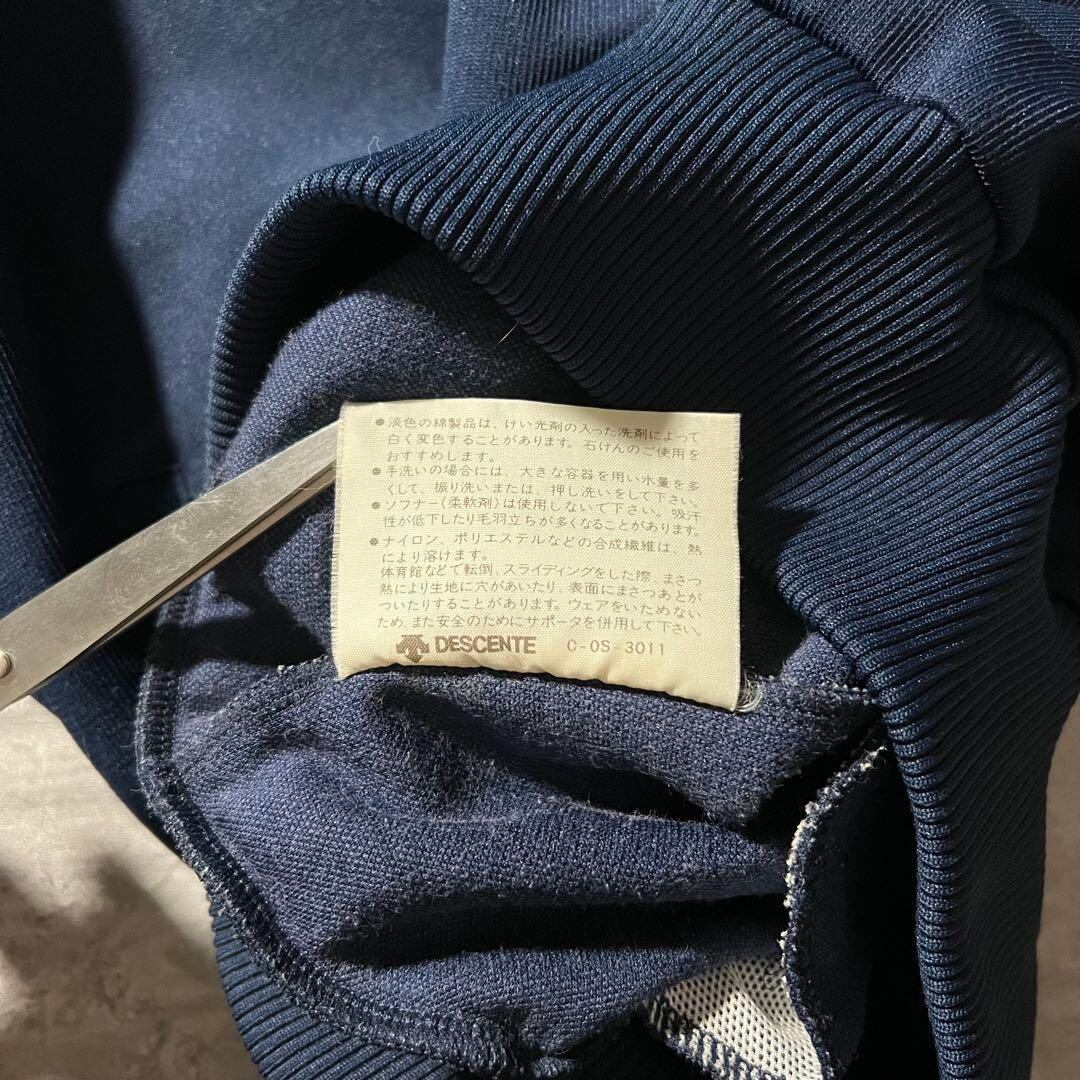 ●淡色の綿製品は、けい光剤の入った洗剤によって
白く変色することがあります。石けんのご使用を
おすすめします。
●手洗いの場合には、大きな容器を用い水量を多
くして、振り洗いまたは、押し洗いをして下さい。
●ソフナー(柔軟剤)は使用しないで下さい。吸汗
性が低下したり毛羽立ちが多くなることがあります。
●ナイロン、ポリエステルなどの合成繊維は、熱
により溶けます。
体育館などで転倒、スライディングをした際、まさつ
熱により生地に穴があいたり、表面にまさつあとが
ついたりすることがあります。ウェアをいためない
ため、また安全のためにサポータを併用して下さい。
DESCENTE C-OS-3011